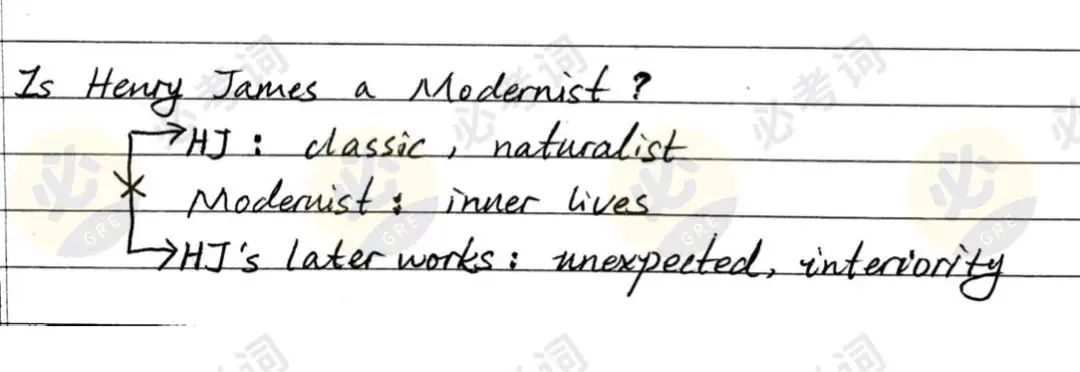 Is Henry James a Modernist?
→HJ: classic, naturalist
Modernist: inner lives
→HJ's later works: unexpected, interiority
必考词
必 GRE
必 GRE
必 GRE
必考词